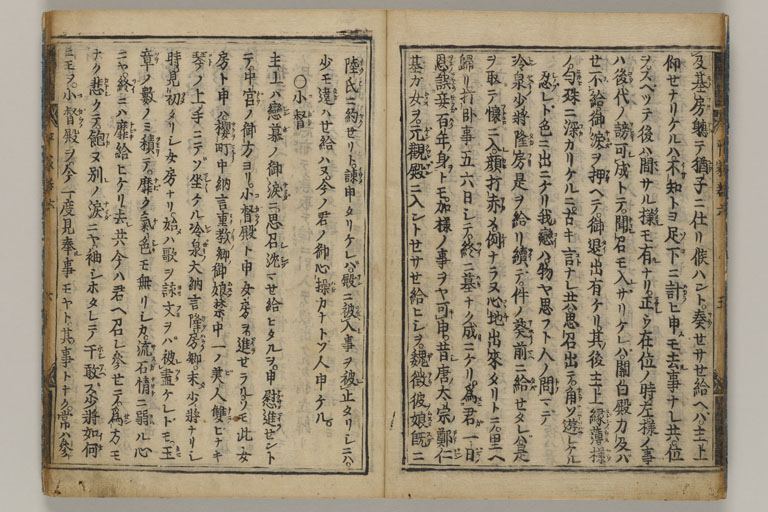 及基房軈テ猶子ニ仕リ候ハント奏セサセ給ヘバ主上
仰セナリケルハ不知トヨ足下ニ計ヒ申モ去事ナレ共位
ヲスベッテ後ハ間サル様モ有ナリ正ウ在位ノ時左様ノ事
ハ後代ノ謗可成トテ聞召モ入サリケレバ關白殿力及バ
セ不給御涙ヲ押ヘテ御退出有ケリ其後主上緑薄様
ノ匂殊ニ深カリケルニ古キ言ナレ共思召出テ角ソ遊レケル
忍レド色ニ出ニケリ我戀ハ物ヤ思フト人ノ問マデ
冷泉少將隆房是ヲ給リ續テ件ノ葵前ニ給セタレバ是
ヲ取テ懷ニ入顔打赤メ例ナラヌ心地出來タリトテ里ヘ
歸リ打臥事五六日シテ終ニ墓ナク成ニケリ爲君一日
恩誤妾百年身トモ加様ノ事ヲヤ可申昔唐太宗鄭仁
基カ女ヲ元觀殿ニ入ントセサセ給ヒシヲ魏徴彼娘既ニ
陸氏ニ約セリト諫申タリケレバ殿ニ被入事ヲ被止タリシニハ
少モ違ハセ給ハヌ今ノ君ノ御心操カナトゾ人申ケル
〇小督
主上ハ戀慕ノ御涙ニ思召沈マセ給ヒタルヲ申慰進セント
テ中宮ノ御方ヨリ小督殿ト申女房ヲ進セラル抑モ此女
房ト申ハ櫻町中納言重教卿御娘禁中一ノ美人雙ヒナキ
琴ノ上手ニテソ坐ケル冷泉大納言隆房卿未少將ナリシ
時見初タリシ女房ナリ始ハ歌ヲ詠文ヲバ被盡ケレドモ玉
章ノ數ノミ積テ靡ク氣色モ無リシカ流石情ニ弱ル心
ニヤ終ニハ靡給ヒケリ去共今ハ君ヘ召レ參セテ爲方モ
ナク悲クテ飽ヌ別ノ涙ニヤ袖シホタレテ干敢ス少將如何
ニモシテ小督殿ヲ今一度見奉事モヤト其事トナク常ハ參